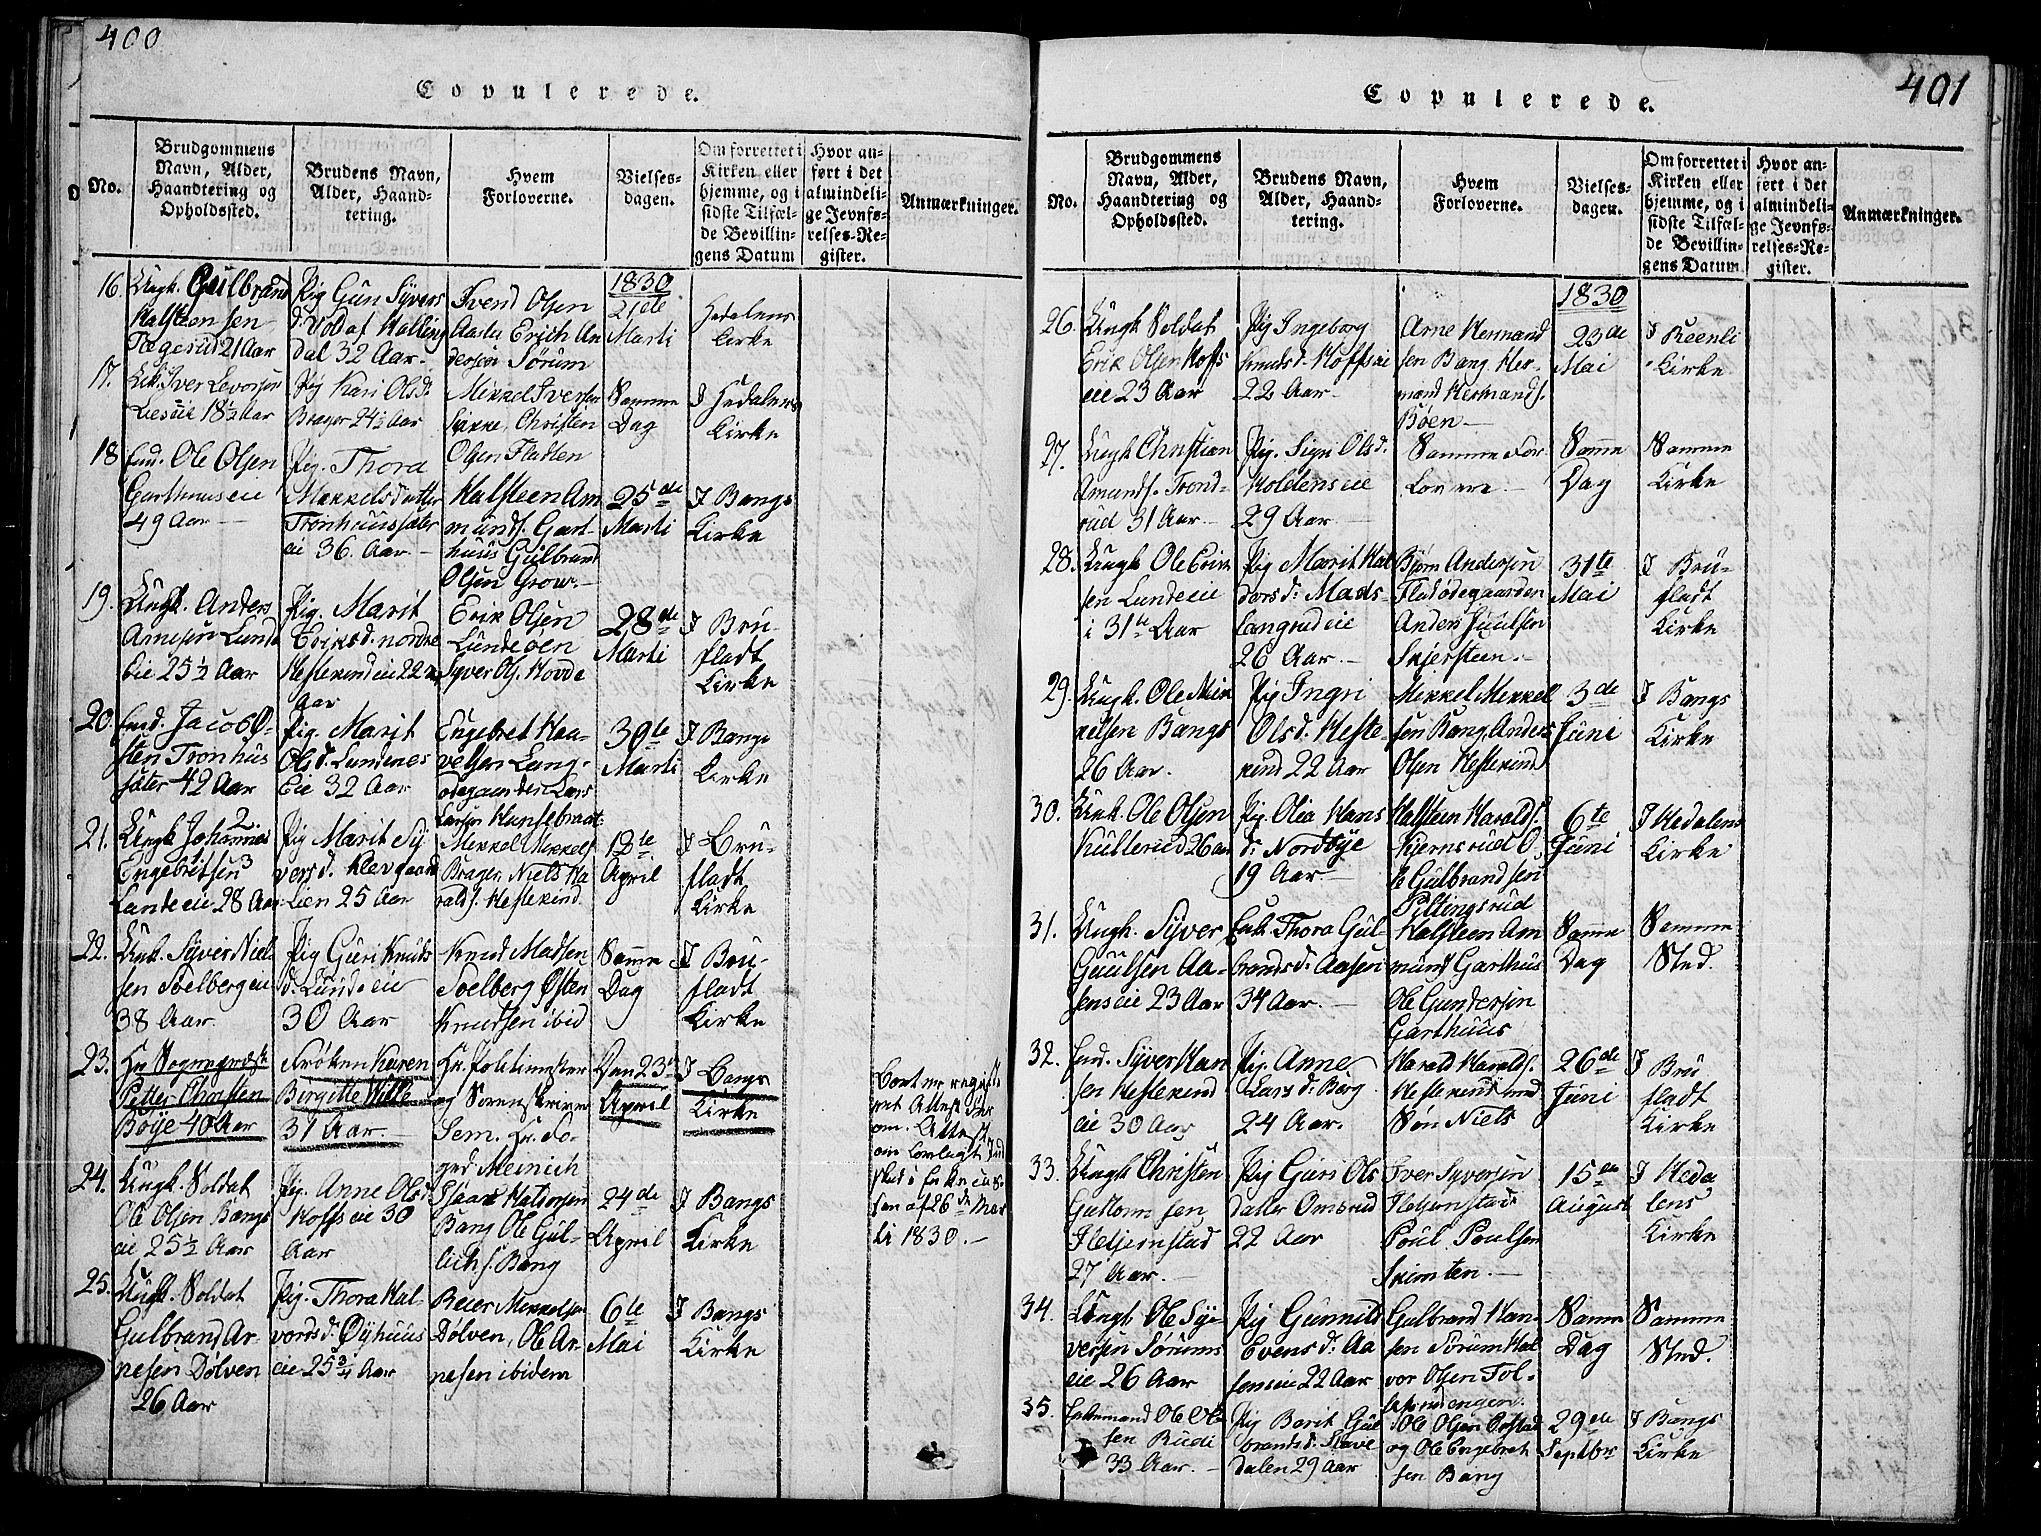 400
Copulerede.
No.
Brudgommens Navn, Alder, Haandtering og Opholdssted.
Brudens Navn, Alder, Haandtering.
Hvem Forloverne.
Vielsesdagen.
Om forrettet i Kirken eller hjemme, og i sidste Tilfælde Bevillingens Datum
Hvor anført i det almindelige Jevnførelses-Register.
Anmærkninger.
1830
16. Ungk. Gulbrand
Halsteensen
21 Aar
Pig Gun Syvers
d. Vold af Halling
dal 32 Aar
Svend Olsen
Aaslie Erich An
dersen Sørum
21de
Marti
Hedalens
Kirke
17. Iver Levorsen
18½ Aar
Pig Kari Olsd.
Brager 24½ Aar
Mikkel Iversen
Christen
Olsen Flatten
Samme
Dag
I Hedalens
Kirke
18 Enk. Ole Olsen
Garthuus eie
49 Aar
Pig. Thora
Mekkelsdatter
Tronhuussæter
eie 36. Aar
Halsteen Am
munds. Gart-
huus Gulbrand
Olsen Grow.
25de
Marti
I Bangs
Kirke
19. Ungk. Anders
Arnesen Lunde
Eie 25½ Aar
Pig. Marit
Eriksd. nordre
Hestekind eie 22
Aar
Erik Olsen
Lundeøen
Syver Ols. Hovde
28de
Marti
I Bru-
fladt
Kirke
20. Enk. Jacob Ø-
sten Tronhus
sæter 42 Aar
Pig. Marit
Ols d. Lundenes
Eie 32 Aar
Engebret Haa-
velsen Lang-
ødegaarden Lars
Larsen
30te
Marti
I Bangs
Kirke
21. Ungk Johannes
Engebretsen
Lunde eie 28 Aar
Pig Marit Sy
versd. Klevgaard
Lien 25 Aar
Mekkel Mekkels
Brager, Niels Ha
ralds. Hestekind
18te
April
I Bru-
fladt
Kirke
22. Enk. Syver Niel
sen Soelberg eie
38 Aar.
Pig Guri Knuds
d. Lunde eie
30 Aar
Knud Madsen
Soelberg Østen
Knudsen ibid
Samme
Dag
I Bru-
fladt
Kirke
23. Hr Sogneprest
Petter Christen
Bøye 40 Aar
Frøken Karen
Birgitte Wille
31 Aar.
Hr. Politimester
og Sorenskriver
Sem. Hr. Fo-
ged Meinich
Den 23de
April
I Bangs
Kirke
Attest
om. Attest
af 26de Mar
ti 1830.
24. Ungk. Soldat
Ole Olsen Bangs
eie 25½ Aar
Pig. Anne Olsd.
Hoffs eie 30
Aar
Halvorsen
Bang Ole Gul-
lichs. Bang
24de
April
I Bangs
Kirke
25. Ungk. Soldat
Gulbrand Ar-
nesen Dølven
26 Aar
Pig. Thora Hal-
vordsd. Øyhuus
eie 25¾ Aar
Beier Mekkelsen
Dølven, Ole Ar-
nesen ibidem
6te
Mai
I Bangs
Kirke
401
Copulerede.
No.
Brudgommens Navn, Alder, Haandtering og Opholdssted.
Brudens Navn, Alder, Haandtering.
Hvem Forloverne.
Vielsesdagen.
Om forrettet i Kirken eller hjemme, og i sidste Tilfælde Bevillingens Datum.
Hvor anført i det almindelige Jevnførelses-Register.
Anmærkninger.
1830
26. Ungk Soldat
Erik Olsen Hoffs
eie 23 Aar
Pig Ingeborg
Knudsd. Hoffs eie
22 Aar
Arne Hermand
sen Bang Her-
mand Hermands.
Bøen
23de
Mai
I Reenli
Kirke
27. Ungk Christian
Amunds. Trond-
rud 31 Aar
Pig. Sigri Olsd.
Holdens eie
29 Aar
Samme For
lovere
Samme
Dag
Samme
Kirke
28. Ungk Ole Erik
sen Lunde eie
i 31te Aar
Pig Marit Hal
dorsd. Mads-
langrud eie
26 Aar.
Bjørn Andersen
Fladødegaarden
Anders Juulsen
Skjersteen.
31te
Mai
I Bru-
fladt
Kirke
29. Ungk. Ole Mik
kelsen Bangs
26 Aar.
Pig Ingri
Olsd. Heste-
kind 22 Aar
Mekkel Mekkel
sen Bang Anders
Olsen Hestekind
3de
Juni
I Bangs
Kirke
30. Ungk. Ole Olsen
Kulterud 26 Aar
Pig. Olea Hans
d. Nordbye
19 Aar
Halsteen Haralds.
Kjernsrud O-
le Gulbrandsen
Pillingsrud
6te
Juni
I Hedalens
Kirke
31. Ungk. Syver
Guulsen Aa-
sens eie 23 Aar
Enk. Thora Gul-
brandsd. Aasen
34 Aar.
Halsteen Am
mund Garthus
Ole Gundersen
Garthuus
Samme
Dag
Samme
Sted.
32. Enk. Syver Han
sen Hestekind
eie 30 Aar
Pig. Anne
Lars d. Berg
24 Aar.
Harald Haralds.
Hestekind med
Søn Niels
26de
Juni
I Bru
fladt
Kirke
33. Ungk Christen
Guttormsen
Iltjernstad
27 Aar.
Pig Guri Ols
datter Omsrud
22 Aar
Iver Syversen
Iltjernstad
Poul Poulsen
Skinten.
15de
August
I Heda
lens
Kirke
34. Ungk Ole Sy-
versen Sørums
eie 26 Aar
Pig Gunnild
Evens d. Aa
sens eie 22 Aar
Gulbrand Han-
sen Sørum Hal
vor Olsen Fol-
Samme
Dag
Samme
Sted.
35. Enkemand Ole Ol
sen Rudi
33 Aar.
Pig Berit Gul
brandsd. Have
dalen 29 Aar
Ole Olsen
og Ole Engebret
sen Bang
29de
Septbr
I Bangs
Kirke